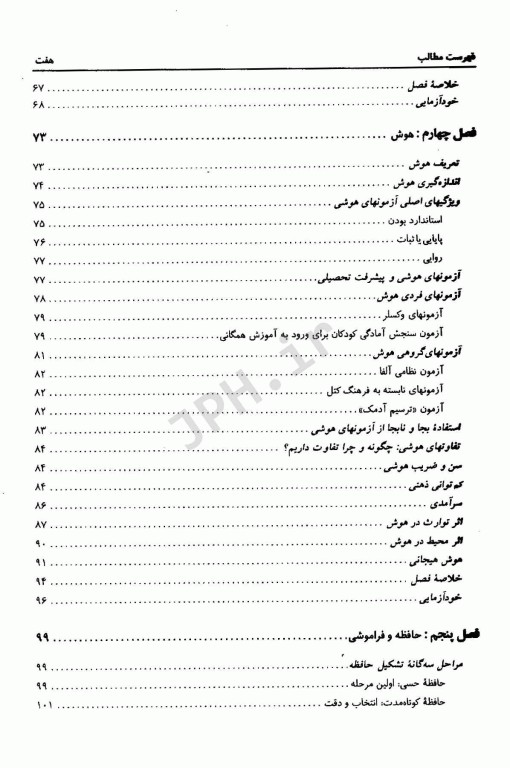 فهرست مطالب هفت
خلاصهٔ فصل ........ ۶۷
خودآزمایی ........ ۶۸
فصل چهارم : هوش ........ ۷۳
تعریف هوش ........ ۷۳
اندازه‌گیری هوش ........ ۷۴
ویژگیهای اصلی آزمونهای هوشی ........ ۷۵
استاندارد بودن ........ ۷۵
پایایی یا ثبات ........ ۷۶
روایی ........ ۷۷
آزمونهای هوشی و پیشرفت تحصیلی ........ ۷۷
آزمونهای فردی هوش ........ ۷۸
آزمونهای وکسلر ........ ۷۹
آزمون سنجش آمادگی کودکان برای ورود به آموزش همگانی ........ ۷۹
آزمونهای گروهی هوش ........ ۸۱
آزمون نظامی آلفا ........ ۸۲
آزمونهای نابسته به فرهنگ کتل ........ ۸۲
آزمون «ترسیم آدمک» ........ ۸۲
استفادهٔ بجا و نابجا از آزمونهای هوشی ........ ۸۳
تفاوتهای هوشی: چگونه و چرا تفاوت داریم؟ ........ ۸۴
سن و ضریب هوشی ........ ۸۴
کم‌توانی ذهنی ........ ۸۴
سرآمدی ........ ۸۶
اثر توارث در هوش ........ ۸۷
اثر محیط در هوش ........ ۹۰
هوش هیجانی ........ ۹۱
خلاصهٔ فصل ........ ۹۴
خودآزمایی ........ ۹۶
فصل پنجم : حافظه و فراموشی ........ ۹۹
مراحل سه‌گانهٔ تشکیل حافظه ........ ۹۹
حافظهٔ حسی: اولین مرحله ........ ۹۹
حافظهٔ کوتاه‌مدت: انتخاب و دقت ........ ۱۰۱
JPH.ir